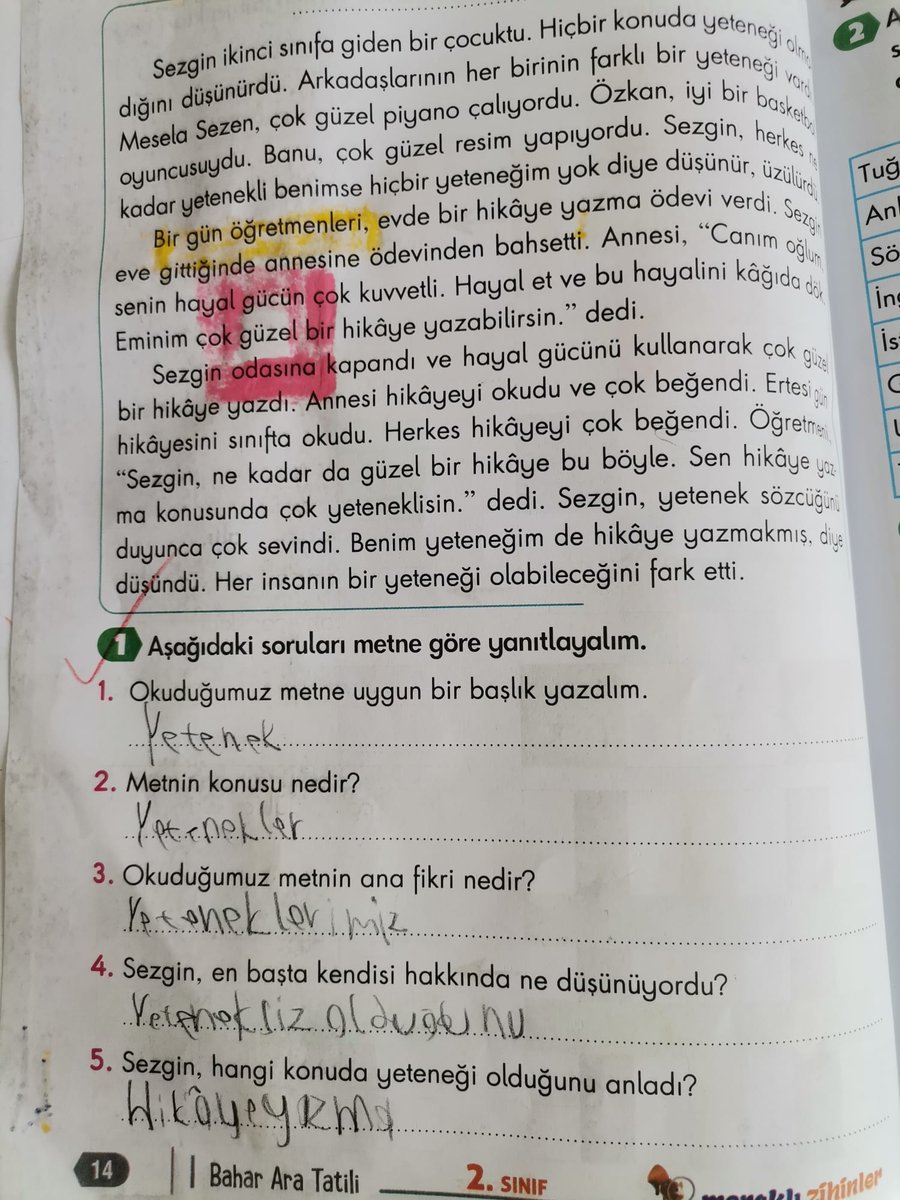 Sezgin ikinci sınıfa giden bir çocuktu. Hiçbir konuda yeteneği olma
dığını düşünürdü. Arkadaşlarının her birinin farklı bir yeteneği vardı
Mesela Sezen, çok güzel piyano çalıyordu. Özkan, iyi bir basketbo
oyuncusuydu. Banu, çok güzel resim yapıyordu. Sezgin, herkes ne
kadar yetenekli benimse hiçbir yeteneğim yok diye düşünür, üzülürdü
Bir gün öğretmenleri, evde bir hikâye yazma ödevi verdi. Sezgin
eve gittiğinde annesine ödevinden bahsetti. Annesi, “Canım oğlum,
senin hayal gücün çok kuvvetli. Hayal et ve bu hayalini kâğıda dök.
Eminim çok güzel bir hikâye yazabilirsin.” dedi.
Sezgin odasına kapandı ve hayal gücünü kullanarak çok güzel
bir hikâye yazdı. Annesi hikâyeyi okudu ve çok beğendi. Ertesi gün
hikâyesini sınıfta okudu. Herkes hikâyeyi çok beğendi. Öğretmeni,
“Sezgin, ne kadar da güzel bir hikâye bu böyle. Sen hikâye yaz-
ma konusunda çok yeteneklisin.” dedi. Sezgin, yetenek sözcüğünü
duyunca çok sevindi. Benim yeteneğim de hikâye yazmakmış, diye
düşündü. Her insanın bir yeteneği olabileceğini fark etti.
1 Aşağıdaki soruları metne göre yanıtlayalım.
1. Okuduğumuz metne uygun bir başlık yazalım.
Yetenek
2. Metnin konusu nedir?
Yetenekler
3. Okuduğumuz metnin ana fikri nedir?
Yeteneklerimiz
4. Sezgin, en başta kendisi hakkında ne düşünüyordu?
Yeteneksiz olduğunu
5. Sezgin, hangi konuda yeteneği olduğunu anladı?
Hikâyeyazma
14 Bahar Ara Tatili 2. SINIF meraklı zihinler
2 A
Tuğ
Anl
Sö
İng
İs